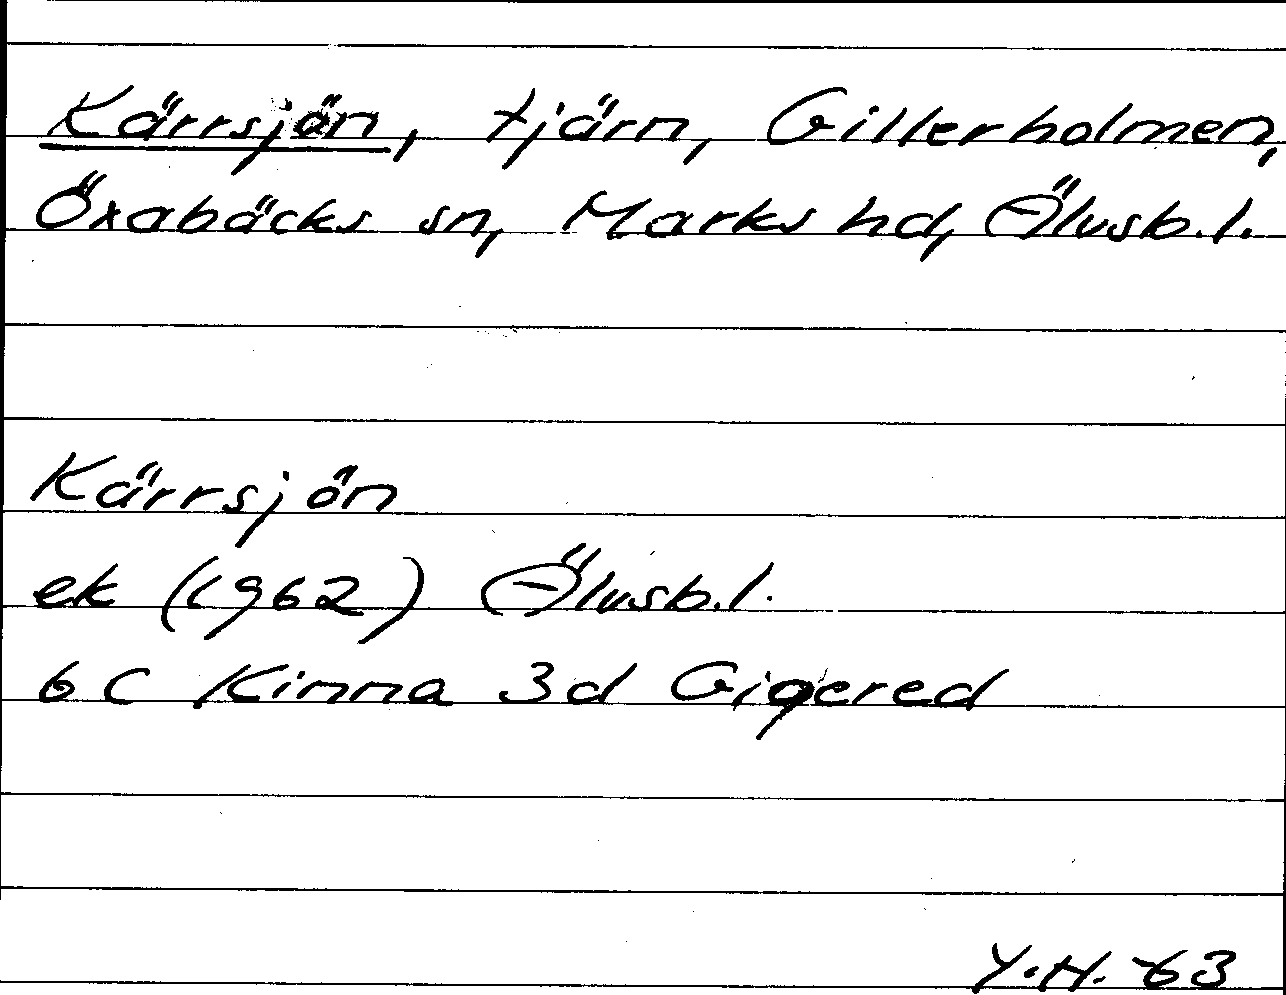 Kärrsjön, tjärn, Gillerholmen,
Öxabäcks sn, Marks hd, Älvsb.l.
Kärrsjön
ek (1962) Älvsb.l.
6 C Kinna 3d Gigered
Y.H. -63